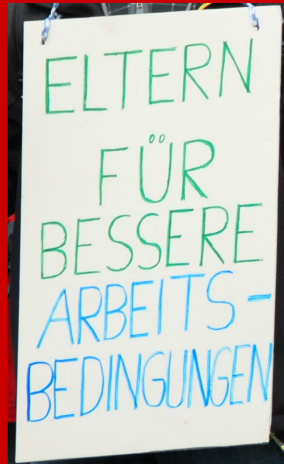 ELTERN
FÜR
BESSERE
ARBEITS-
BEDINGUNGEN